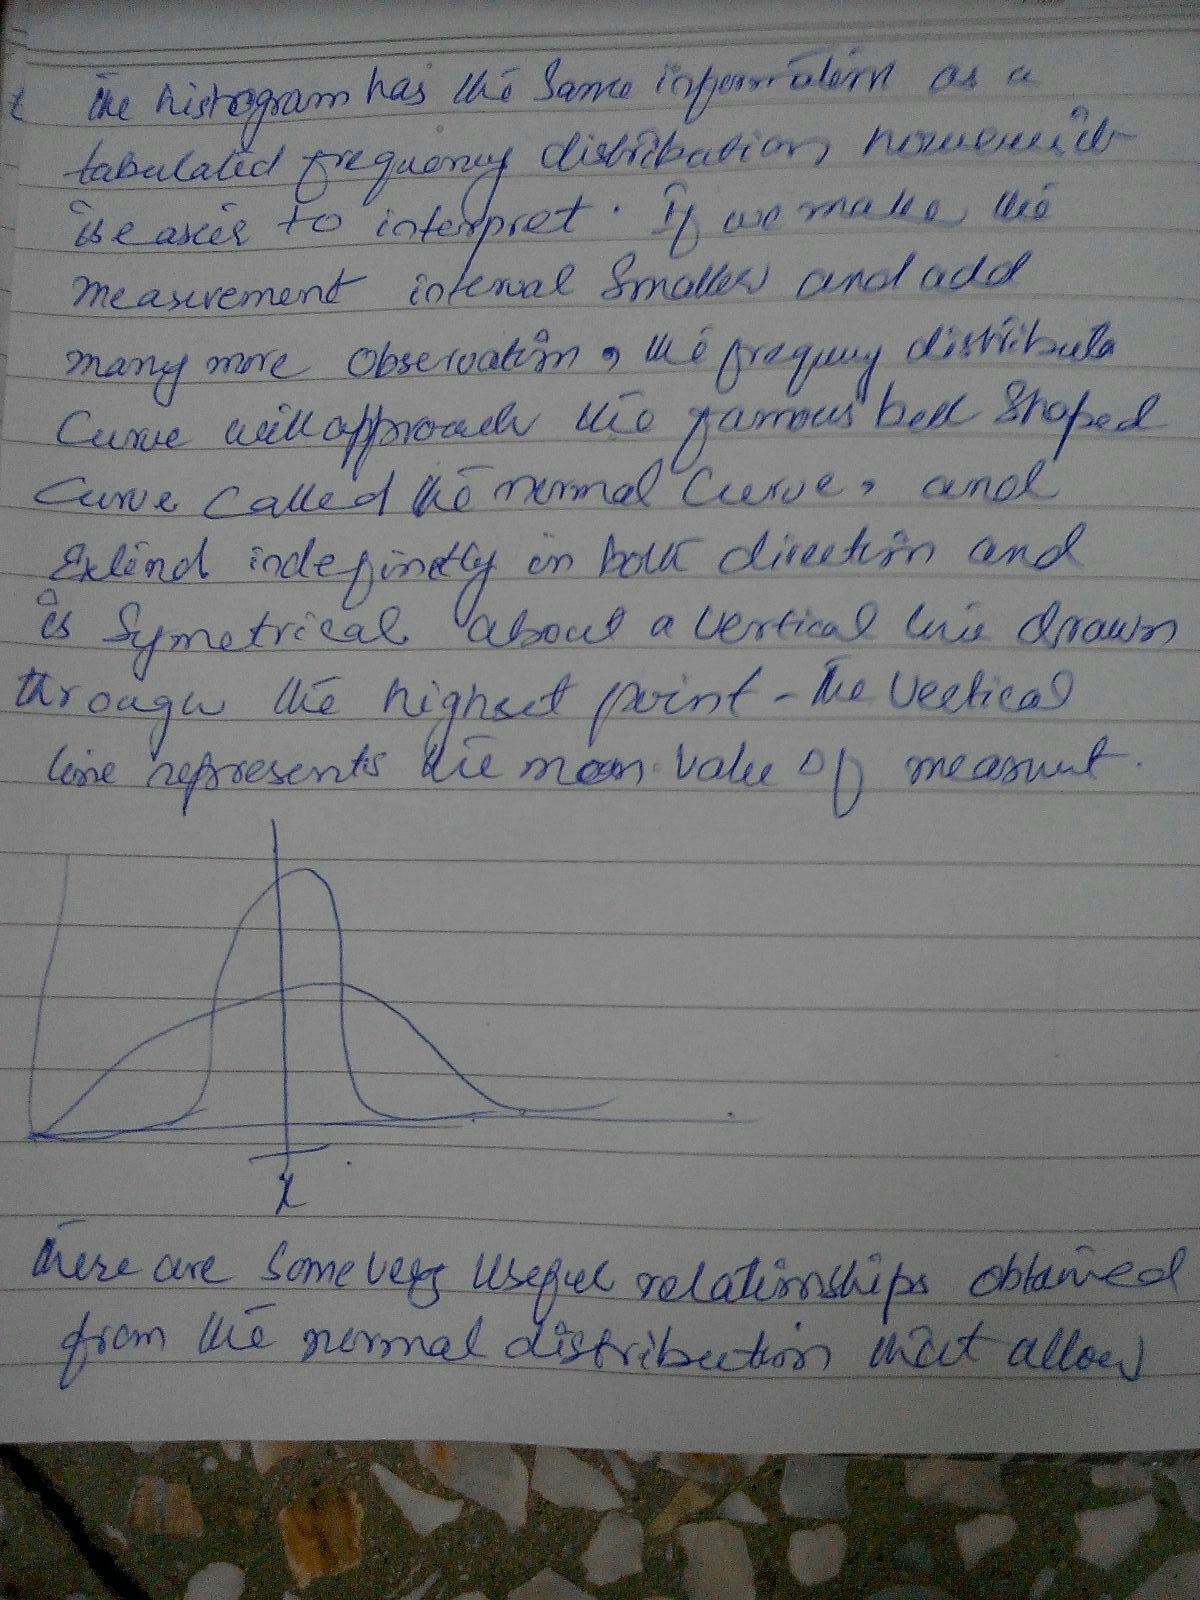 The histogram has the same information as a
tabulated frequency distribution however it
is easier to interpret. If we make the
measurement interval smaller and add
many more observation, the frequency distributa
curve will approach the famous bell shaped
curve called the normal curve, and
Extend indefinetly in both direction and
is symetrical about a vertical line drawn
through the highset point - The vertical
line represents the mean value of
x
There are some very useful relationships obtained
from the normal distribution that allow